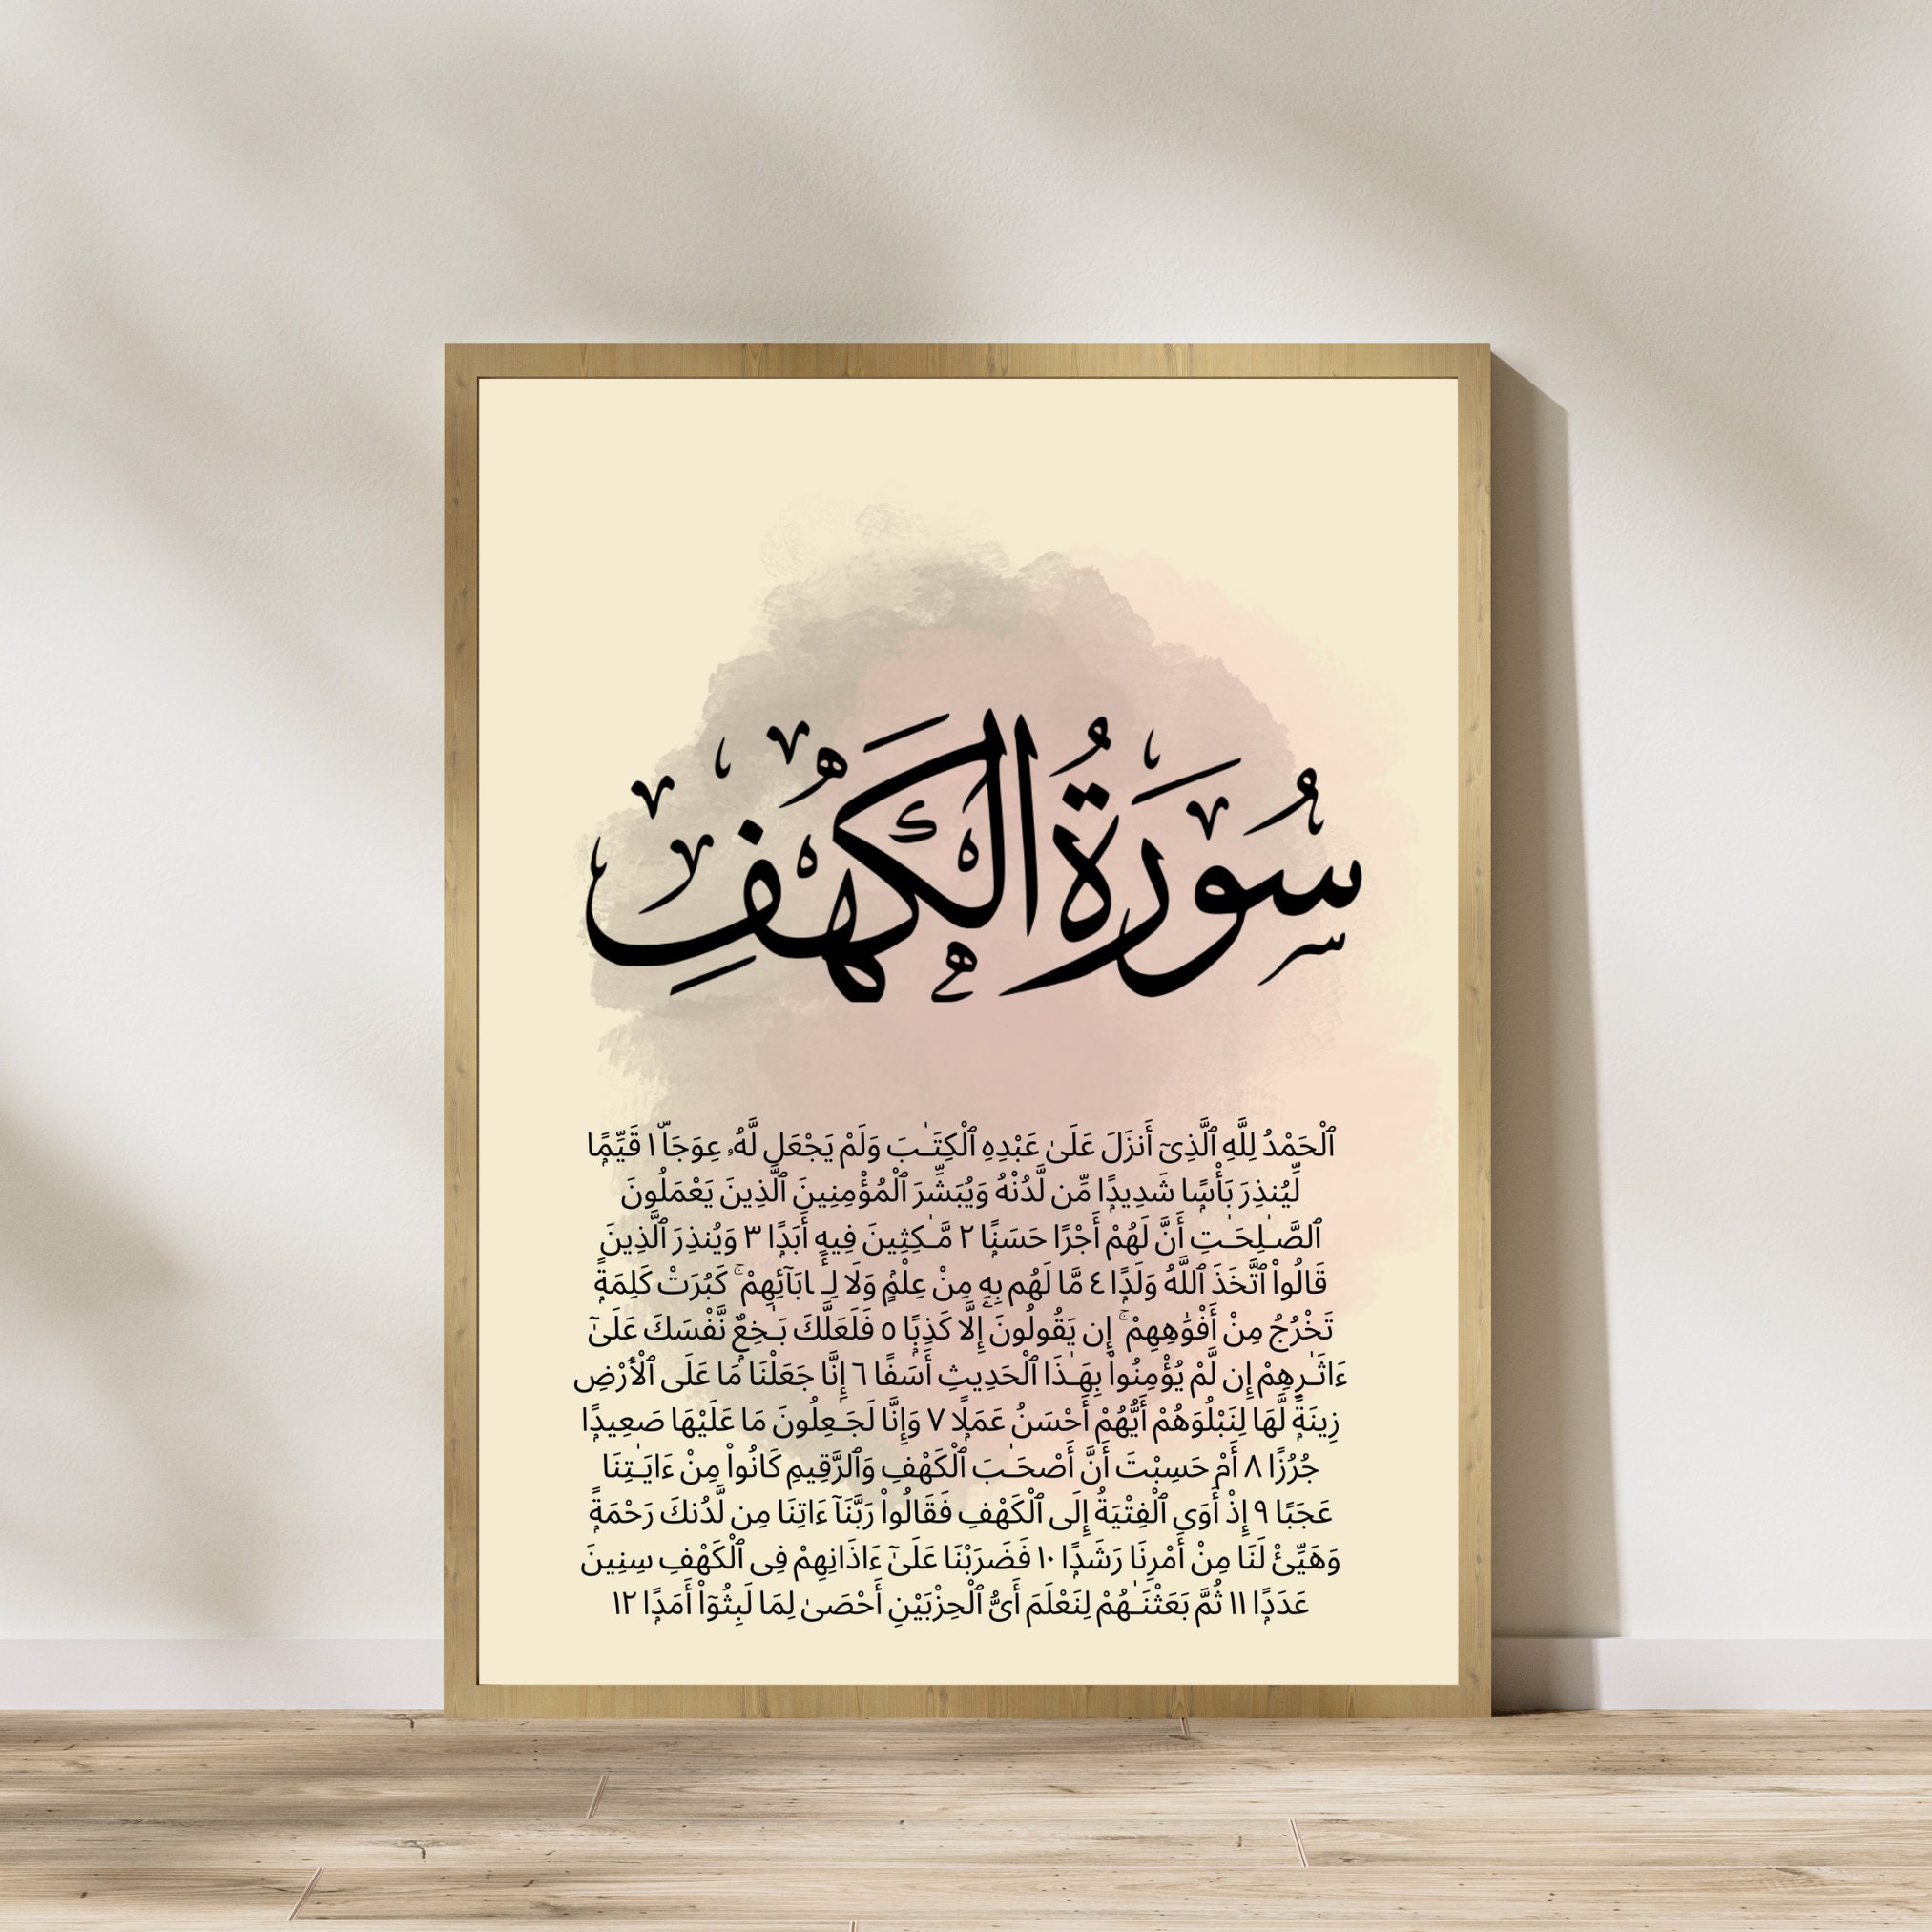 سُورَةُ الْكَهْفِ
ٱلْحَمْدُ لِلَّهِ ٱلَّذِىٓ أَنزَلَ عَلَىٰ عَبْدِهِ ٱلْكِتَـٰبَ وَلَمْ يَجْعَل لَّهُۥ عِوَجَاۜ ١ قَيِّمًۭا
لِّيُنذِرَ بَأْسًۭا شَدِيدًۭا مِّن لَّدُنْهُ وَيُبَشِّرَ ٱلْمُؤْمِنِينَ ٱلَّذِينَ يَعْمَلُونَ
ٱلصَّـٰلِحَـٰتِ أَنَّ لَهُمْ أَجْرًا حَسَنًۭا ٢ مَّـٰكِثِينَ فِيهِ أَبَدًۭا ٣ وَيُنذِرَ ٱلَّذِينَ
قَالُوا۟ ٱتَّخَذَ ٱللَّهُ وَلَدًۭا ٤ مَّا لَهُم بِهِۦ مِنْ عِلْمٍۢ وَلَا لِـَٔابَآئِهِمْ ۚ كَبُرَتْ كَلِمَةًۭ
تَخْرُجُ مِنْ أَفْوَٰهِهِمْ ۚ إِن يَقُولُونَ إِلَّا كَذِبًۭا ٥ فَلَعَلَّكَ بَـٰخِعٌۭ نَّفْسَكَ عَلَىٰٓ
ءَاثَـٰرِهِمْ إِن لَّمْ يُؤْمِنُوا۟ بِهَـٰذَا ٱلْحَدِيثِ أَسَفًا ٦ إِنَّا جَعَلْنَا مَا عَلَى ٱلْأَرْضِ
زِينَةًۭ لَّهَا لِنَبْلُوَهُمْ أَيُّهُمْ أَحْسَنُ عَمَلًۭا ٧ وَإِنَّا لَجَـٰعِلُونَ مَا عَلَيْهَا صَعِيدًۭا
جُرُزًا ٨ أَمْ حَسِبْتَ أَنَّ أَصْحَـٰبَ ٱلْكَهْفِ وَٱلرَّقِيمِ كَانُوا۟ مِنْ ءَايَـٰتِنَا
عَجَبًا ٩ إِذْ أَوَى ٱلْفِتْيَةُ إِلَى ٱلْكَهْفِ فَقَالُوا۟ رَبَّنَآ ءَاتِنَا مِن لَّدُنكَ رَحْمَةًۭ
وَهَيِّئْ لَنَا مِنْ أَمْرِنَا رَشَدًۭا ١٠ فَضَرَبْنَا عَلَىٰٓ ءَاذَانِهِمْ فِى ٱلْكَهْفِ سِنِينَ
عَدَدًۭا ١١ ثُمَّ بَعَثْنَـٰهُمْ لِنَعْلَمَ أَىُّ ٱلْحِزْبَيْنِ أَحْصَىٰ لِمَا لَبِثُوٓا۟ أَمَدًۭا ١٢